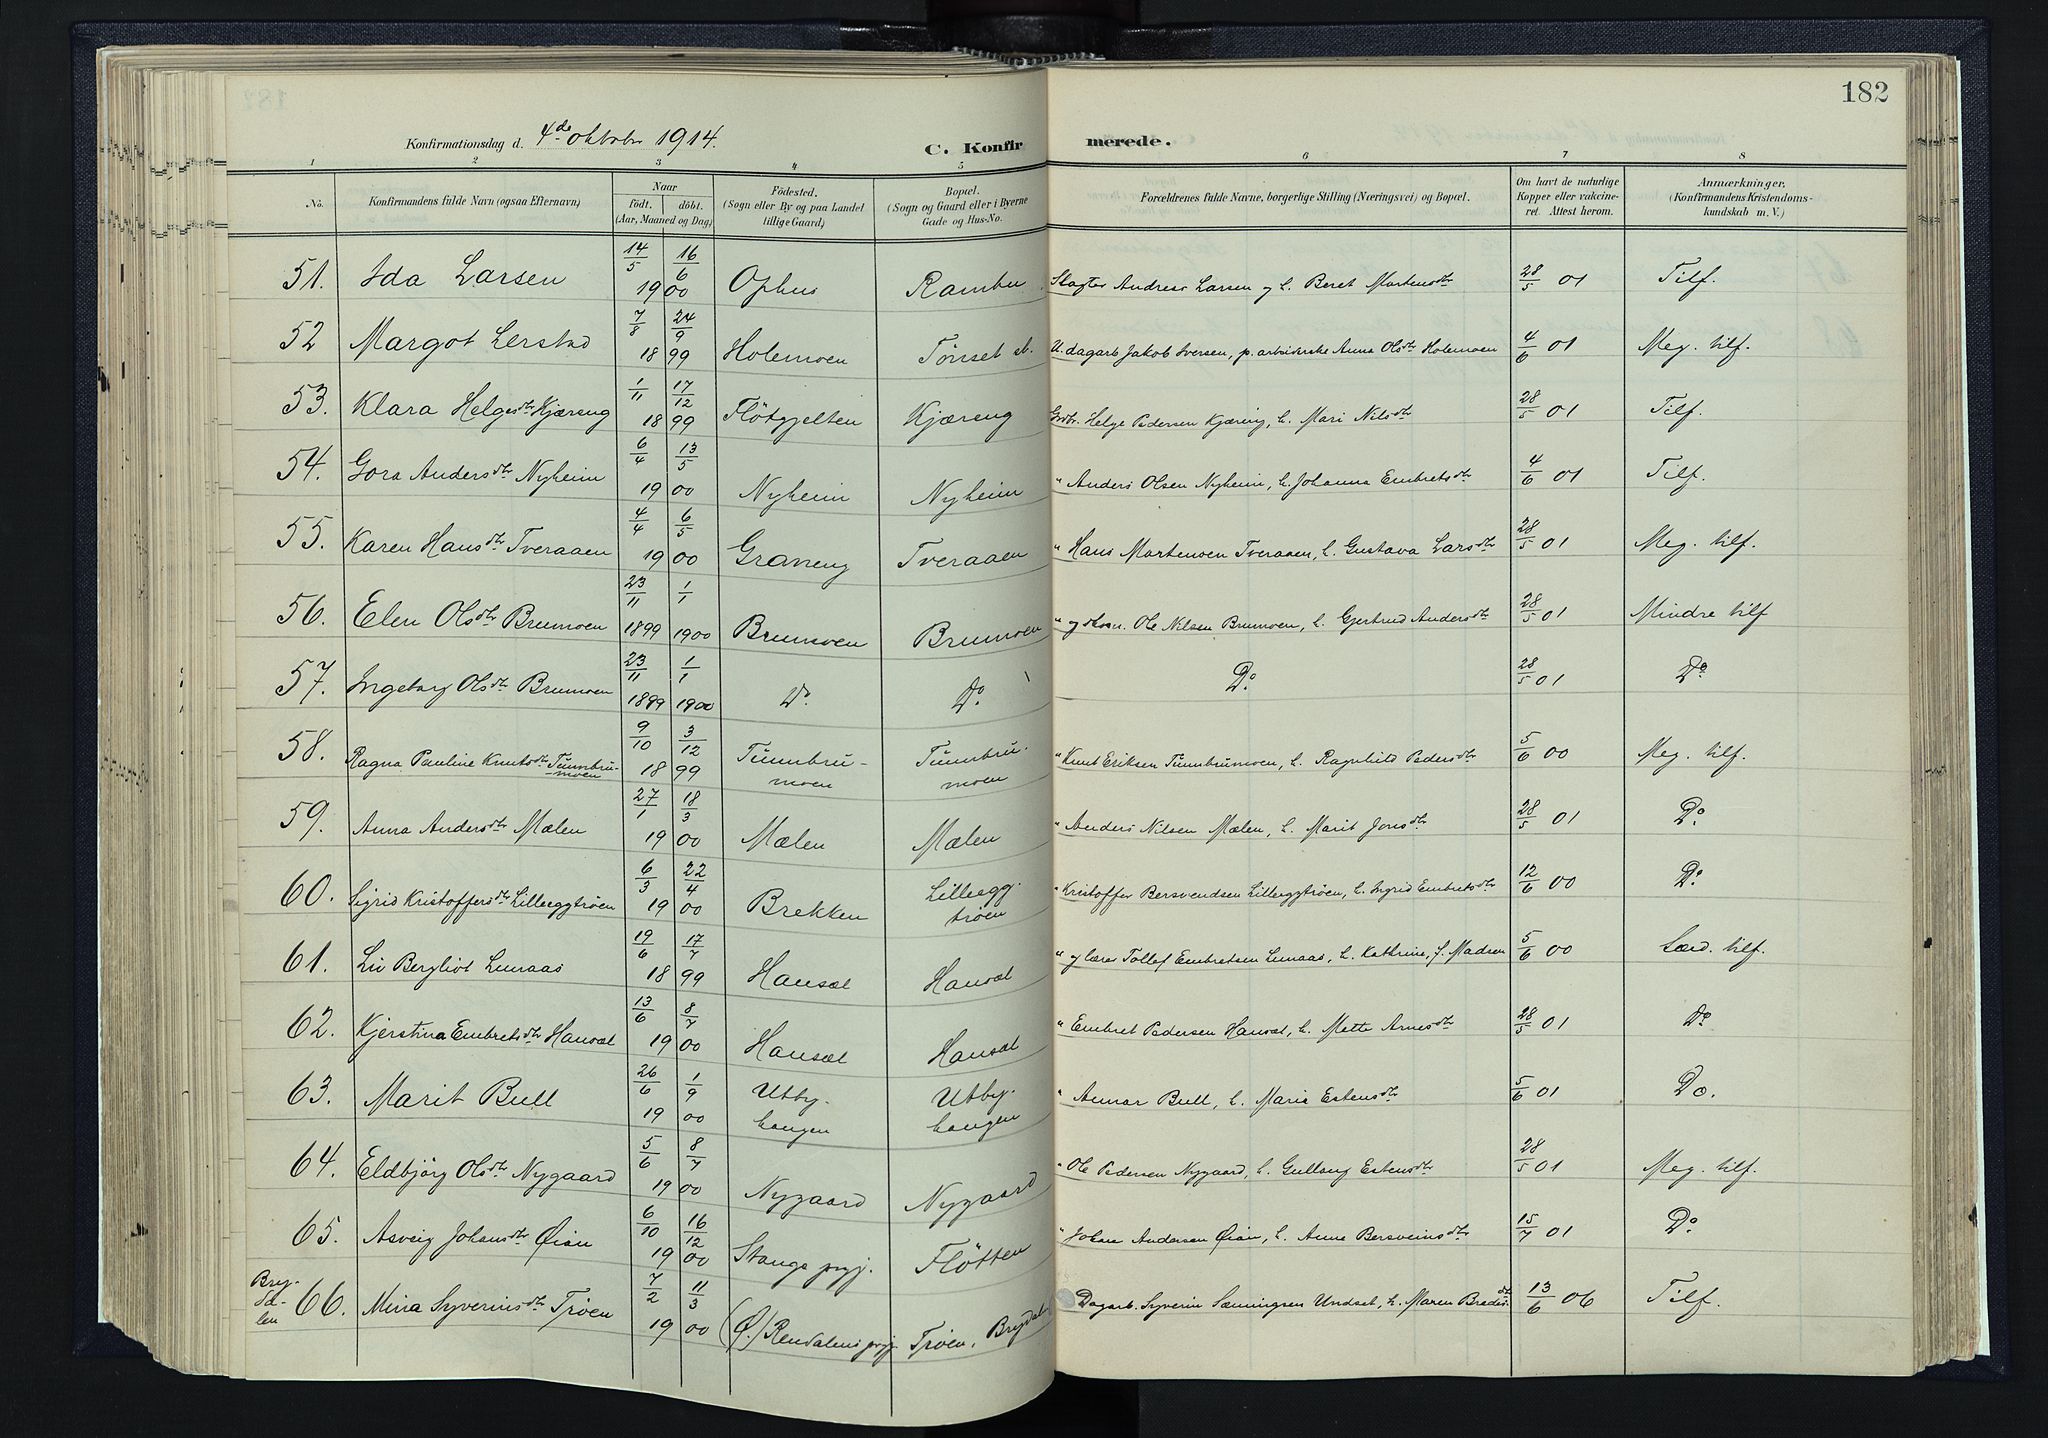 182
Konfirmationsdag d. 4de oktober 1914.
C. Konfirmerede.
1 2 3 4 5 6 7 8
No.
Konfirmandens fulde Navn (ogsaa Efternavn)
Naar
født. døbt.
(Aar, Maaned og Dag)
Fødested.
(Sogn eller By og paa Landet
tillige Gaard)
Bopæl.
(Sogn og Gaard eller i Byerne
Gade og Hus-No.
Forældrenes fulde Navne, borgerlige Stilling (Næringsvei) og Bopæl.
Om havt de naturlige
Kopper eller vakcine-
ret. Attest herom.
Anmærkninger.
(Konfirmandens Kristendoms-
kundskab m. V.)
51. Ida Larsen 14/5 16/6 1900 Ophus Rambu Slagter Andreas Larsen og h. Beret Martensdtr 28/5 01 Tilf.
52 Margot Lerstad 7/8 24/9 1899 Holemoen Tønset sb. U. dagarb. Jakob Iversen, p. arbeiderske Anna Olsdtr Holemoen 4/6 01 Meg. tilf.
53. Klara Helgesdtr Kjæreng 1/11 17/12 1899 Fløtgjelten Kjæreng Grdbr. Helge Pedersen Kjæreng, h. Mari Nilsdtr 28/5 01 Tilf.
54. Gora Andersdtr Nyheim 6/4 13/5 1900 Nyheim Nyheim " Anders Olsen Nyheim, h. Johanna Embretsdtr 4/6 01 Tilf.
55. Karen Hansdtr Tveraaen 4/4 6/5 1900 Graneng Tveraaen " Hans Mortensen Tveraaen, h. Gustava Larsdtr 28/5 01 Meg. tilf.
56. Elen Olsdtr Brumoen 23/11 1899 1/1 1900 Brumoen Brumoen " og Ole Nilsen Brumoen, h. Gjertrud Andersdtr 28/5 01 Mindre tilf
57. Ingeborg Olsdtr Brumoen 23/11 1899 1/1 1900 Do. Do. Do. 28/5 01 Do
58. Ragna Pauline Knutsdtr Tunnbru-
moen 9/10 3/12 1899 Tunnbru-
moen Tunnbru-
moen " Knut Eriksen Tunnbrumoen, h. Ragnhild Pedersdtr 5/6 00 Meg. tilf.
59. Anna Andersdtr Mælen 27/1 18/3 1900 Mælen Mælen " Anders Nilsen Mælen, h. Marit Jonsdtr 28/5 01 Do.
60. Sigrid Kristoffersdtr Lilleeggtrøen 6/3 22/4 1900 Brekken Lilleegg-
trøen " Kristoffer Bersvendsen Lilleeggtrøen, h. Ingrid Embretsdtr 12/6 00 Do.
61. Liv Bergliot Lunaas 19/6 17/7 1899 Hansæt Hansæt " og lærer Tollef Embretsen Lunaas, h. Kathrine, f. Madsen 5/6 00 Særd. tilf.
62. Kjerstina Embretsdtr Hansæt 13/6 8/7 1900 Hansæt Hansæt " Embret Pedersen Hansæt, h. Mette Arnesdtr 28/5 01 Do
63. Marit Bull 26/6 1/9 1900 Utby-
haugen Utby-
haugen " Annar Bull, h. Marie Estensdtr 5/6 01 Do.
64. Eldbjörg Olsdtr Nygaard 5/6 8/7 1900 Nygaard Nygaard " Ole Pedersen Nygaard, h. Gullaug Estensdtr 28/5 01 Meg. tilf.
65. Asveig Johansdtr Øian 6/10 16/12 1900 Stange prgj. Fløtten " Johan Andersen Øian, h. Anne Bersveinsdtr 15/7 01 Do
Bryd-
da-
len 66. Mina Syverinsdtr Trøen 7/2 11/3 1900 (Ø.) Rendalens prgj. Trøen, Brydalen Dagarb. Syverin Sæmingsen Undset, h. Maren Bredesdtr 13/6 06 Tilf.